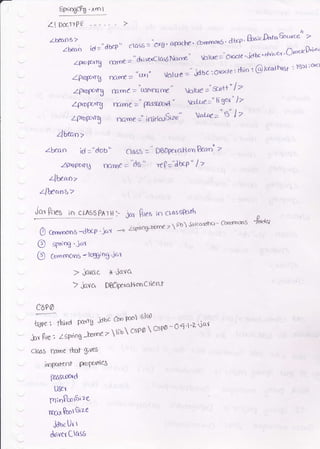 SpringCfg.xml
<! DOCTYPE ........ >
<beans>
<bean id="dbcp" class="org.apache.commons.dbcp.BasicDataSource">
<property name="driverClassName" value="oracle.jdbc.driver.OracleDriver
<property name="url" value="jdbc:oracle:thin:@localhost:1521:orc
<property name="username" value="Scott"/>
<property name="password" value="tiger"/>
<property name="initialSize" value="5"/>
</bean>
<bean id="dob" class="DBOperationBean">
<property name="ds" ref="dbcp"/>
</bean>
</beans>
Jar files in CLASSPATH:- jar files in classpath
① commons-dbcp.jar → <spring_home>\lib\Jakarta-commons folder
② spring.jar
③ commons-logging.jar
> javac *.java
> java DBOperationClient
C3P0
type: third party jdbc con pool s/w
jar file: <spring_home>\lib\C3P0\C3P0-0.9.1.2.jar
class name that gives
important properties
password
user
minPoolSize
maxPoolSize
jdbcUrl
driverClass